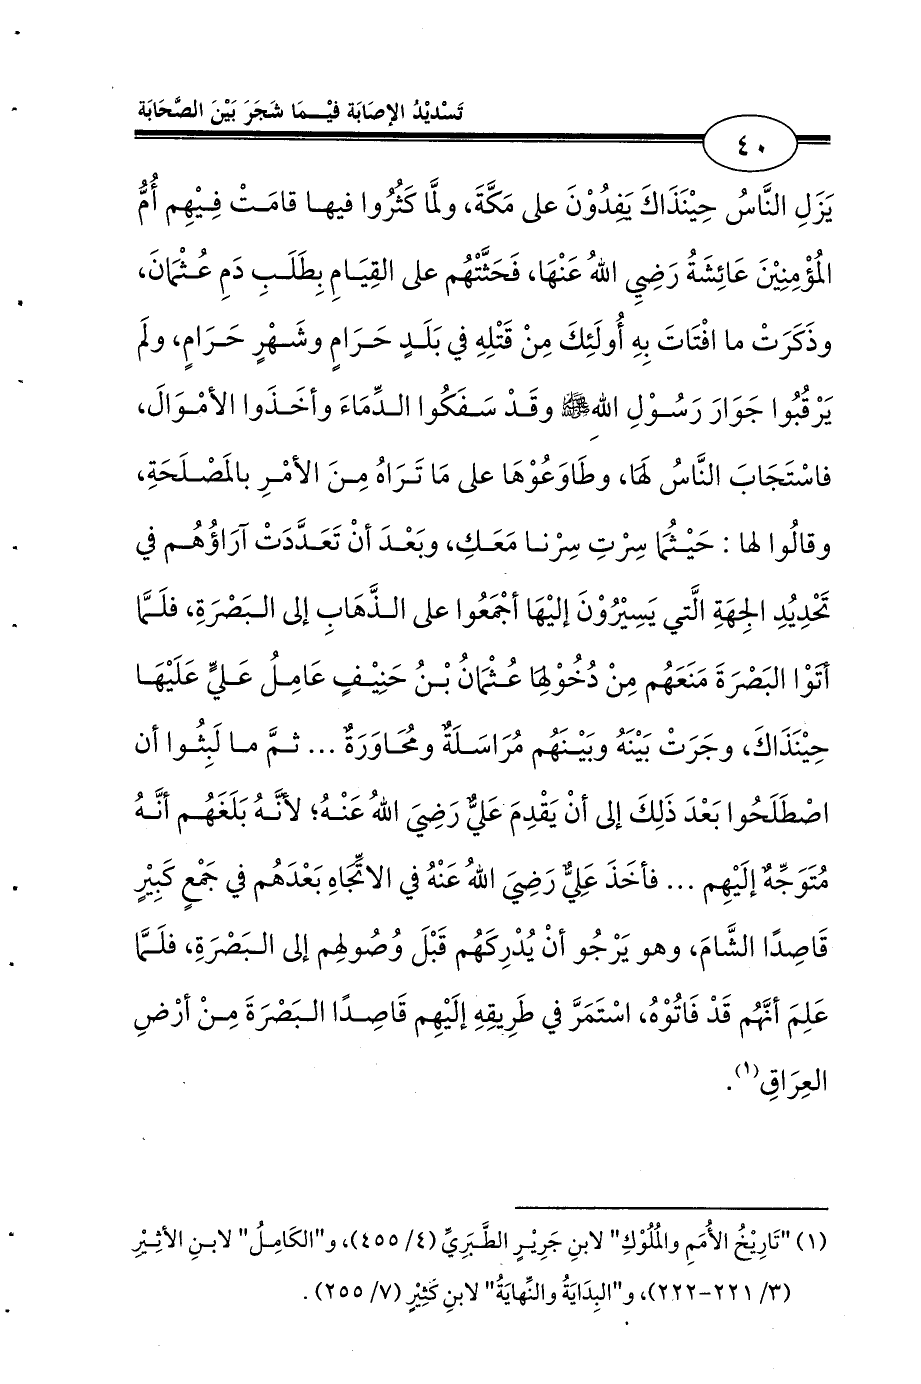 تَسْدِيْدُ الإصَابَة فيْـمَا شَجَرَ بَيْنَ الصَّحَابَة
٤٠
يَزَلِ النَّاسُ حِيْنَذَاكَ يَفِدُوْنَ على مَكَّةَ، ولمَّا كَثُرُوا فيها قامَتْ فِيْهِم أُمُّ
المُؤْمِنِيْنَ عَائِشَةُ رَضِي اللهُ عَنْهَا، فَحَثَّتْهُم على القِيَامِ بِطَلَبِ دَمِ عُثْمانَ،
وذَكَرَتْ ما افْتَاتَ بِهِ أُولَئِكَ مِنْ قَتْلِهِ في بَلَدٍ حَرَامٍ وشَهْرٍ حَرَامٍ، ولَم
يَرْقُبُوا جَوَارَ رَسُوْلِ اللهِ ﷺ وقَدْ سَفَكُوا الدِّمَاءَ وأخَذُوا الأمْوَالَ،
فاسْتَجَابَ النَّاسُ لَهَا، وطَاوَعُوْهَا على مَا تَرَاهُ مِنَ الأمْرِ بالمَصْلَحَةِ،
وقالُوا لها : حَيْثُما سِرْتِ سِرْنا مَعَكِ، وبَعْدَ أنْ تَعَدَّدَتْ آرَاؤُهُم في
تَحْدِيْدِ الجِهَةِ الَّتي يَسِيْرُوْنَ إليْهَا أجْمَعُوا على الذَّهَابِ إلى البَصْرَةِ، فلَمَّا
أتَوْا البَصْرَةَ مَنَعَهُم مِنْ دُخُوْلِها عُثْمانُ بْنُ حَنِيْفٍ عَامِلُ عَليٍّ عَلَيْهَا
حِيْنَذَاكَ، وجَرَتْ بَيْنَهُ وبَيْنَهُم مُرَاسَلَةٌ ومُحَاوَرَةٌ ... ثمَّ ما لَبِثُوا أن
اصْطَلَحُوا بَعْدَ ذَلِكَ إلى أنْ يَقْدِمَ عَليٌّ رَضِيَ اللهُ عَنْهُ؛ لأنَّهُ بَلَغَهُم أنَّهُ
مُتَوَجِّهٌ إلَيْهِم ... فأخَذَ عَليٌّ رَضِيَ اللهُ عَنْهُ في الاتِّجَاهِ بَعْدَهُم في جَمْعٍ كَبِيْرٍ
قَاصِدًا الشَّامَ، وهو يَرْجُو أنْ يُدْرِكَهُم قَبْلَ وُصُولِهِم إلى البَصْرَةِ، فلَمَّا
عَلِمَ أنَّهُم قَدْ فَاتُوْهُ، اسْتَمَرَّ في طَرِيقِهِ إلَيْهِم قَاصِدًا البَصْرَةَ مِنْ أرْضِ
العِرَاقِ(١).
(١) "تَارِيْخُ الأُمَمِ والمُلُوْكِ" لابنِ جَرِيْرٍ الطَّبَرِيِّ (٤/ ٤٥٥)، و"الكَامِلُ" لابنِ الأثِيْرِ
(٣/ ٢٢١-٢٢٢)، و"البِدَايَةُ والنِّهايَةُ" لابنِ كَثِيْرٍ (٧/ ٢٥٥) .